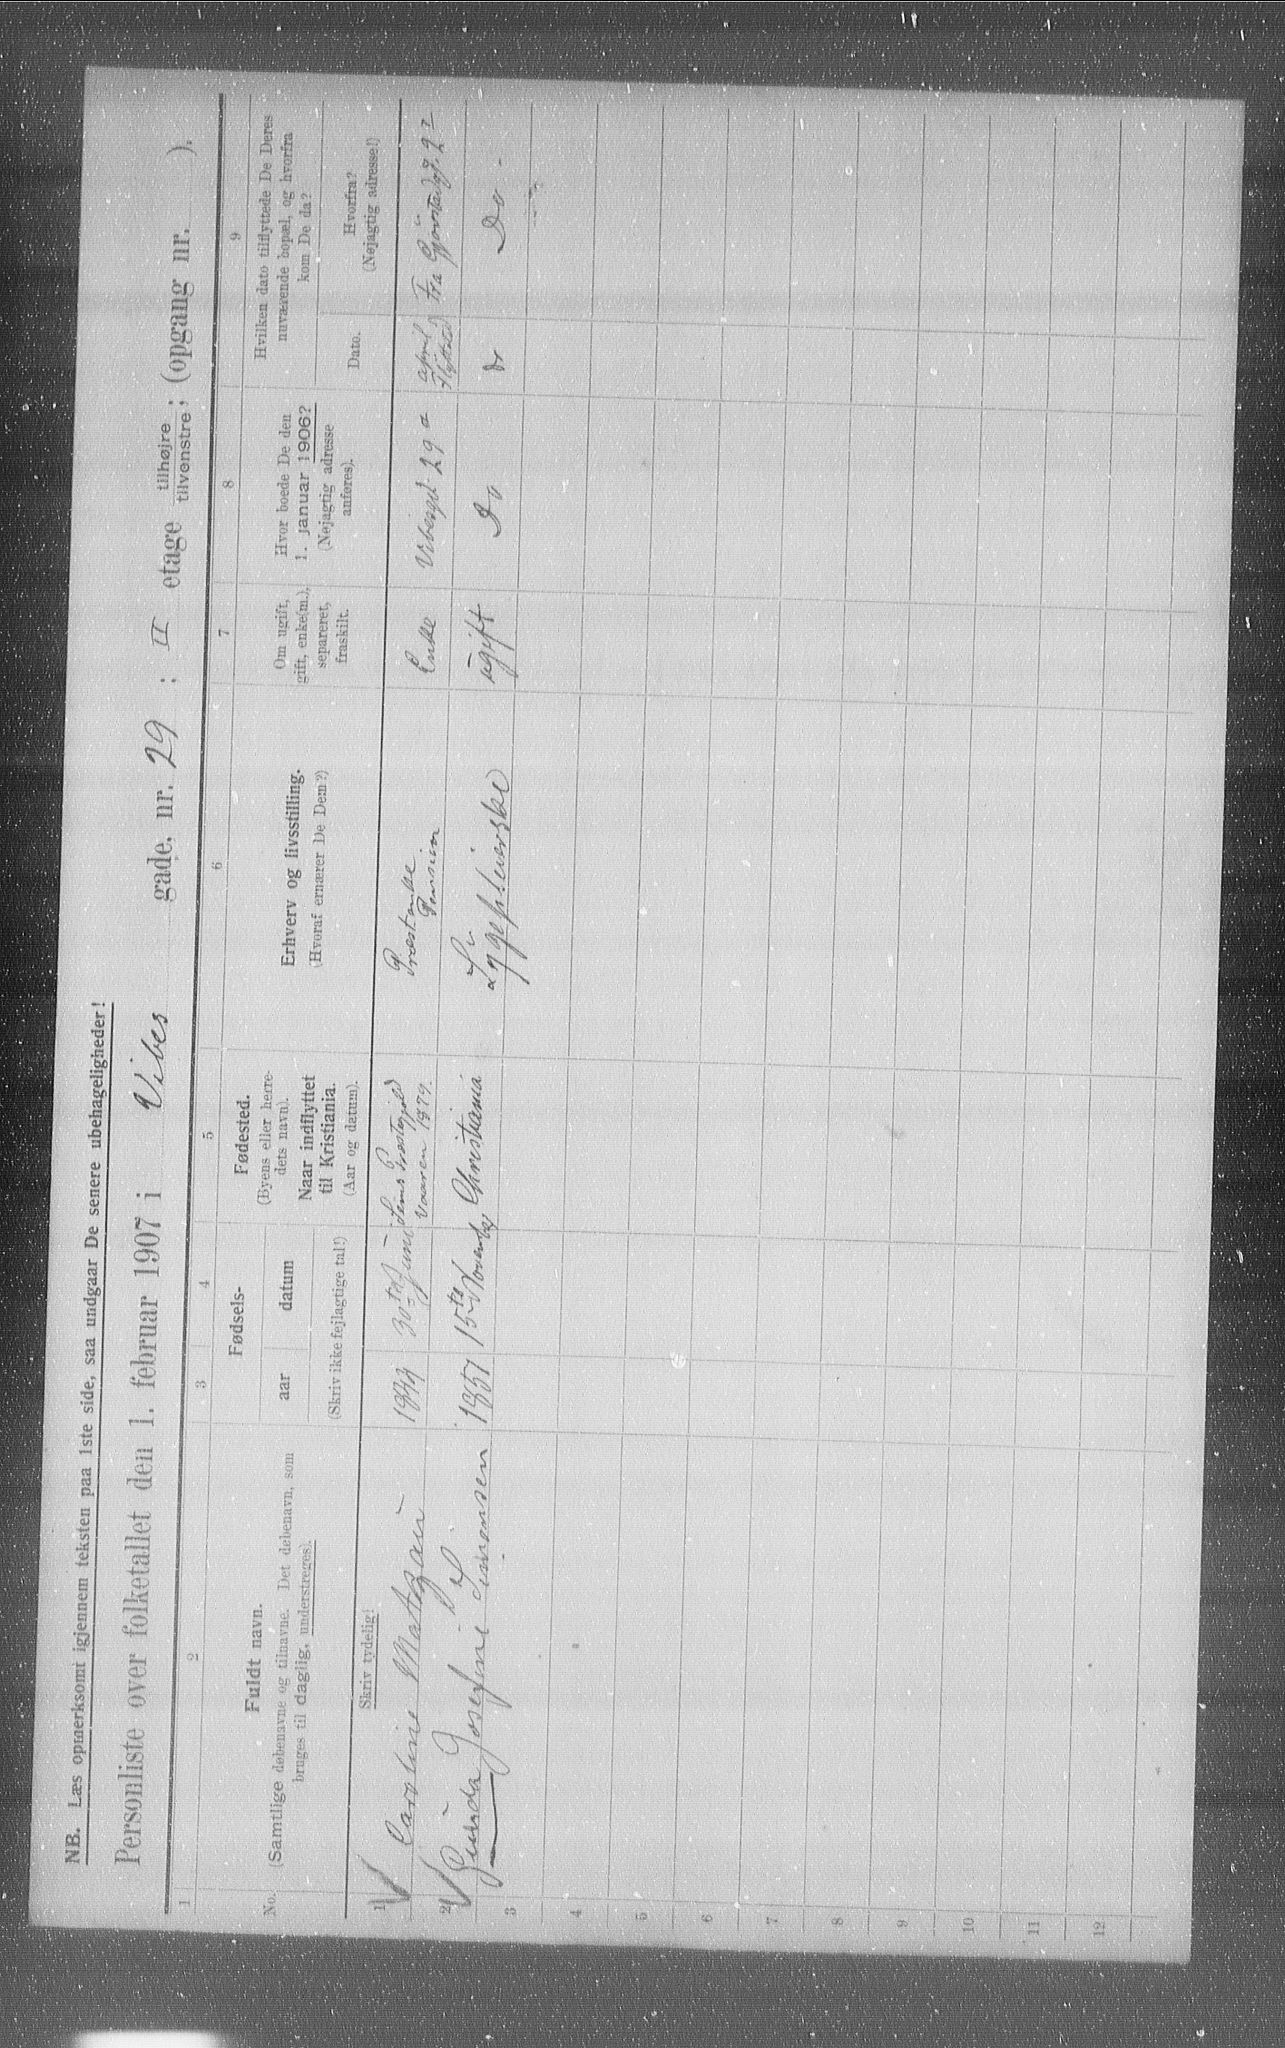 NB. Læs opmerksomt igjennem teksten paa 1ste side, saa undgaar De senere ubehageligheder!
Personliste over folketallet den 1. februar 1907 i Vibes gade, nr. 29 ; II etage tilhøjre ; (opgang nr. ).
tilvenstre
1 2 3 4 5 6 7 8 9
No.
Fuldt navn.
(Samtlige døbenavne og tilnavne. Det døbenavn, som
bruges til daglig, understreges).
Skriv tydelig!
Fødsels-
aar datum
(Skriv ikke fejlagtige tal!)
Fødested.
(Byens eller herre-
dets navn).
Naar indflyttet
til Kristiania.
(Aar og datum).
Erhverv og livsstilling.
(Hvoraf ernærer De Dem?)
Om ugift,
gift, enke(m.),
separeret,
fraskilt.
Hvor boede De den
1. januar 1906?
(Nøjagtig adresse
anføres).
Hvilken dato tilflyttede De Deres
nuværende bopæl, og hvorfra
kom De da?
Dato.
Hvorfra?
(Nøjagtig adresse!)
1 Caroline 30te Juni Præstegjeld Enke Vibesgd. 29 a april Fra
Vaaren 1879. Pension
2 Gunda Josefine Simonsen 1851 15de November Christiania Sygepleierske ugift Do Do -
3
4
5
6
7
8
9
10
11
12